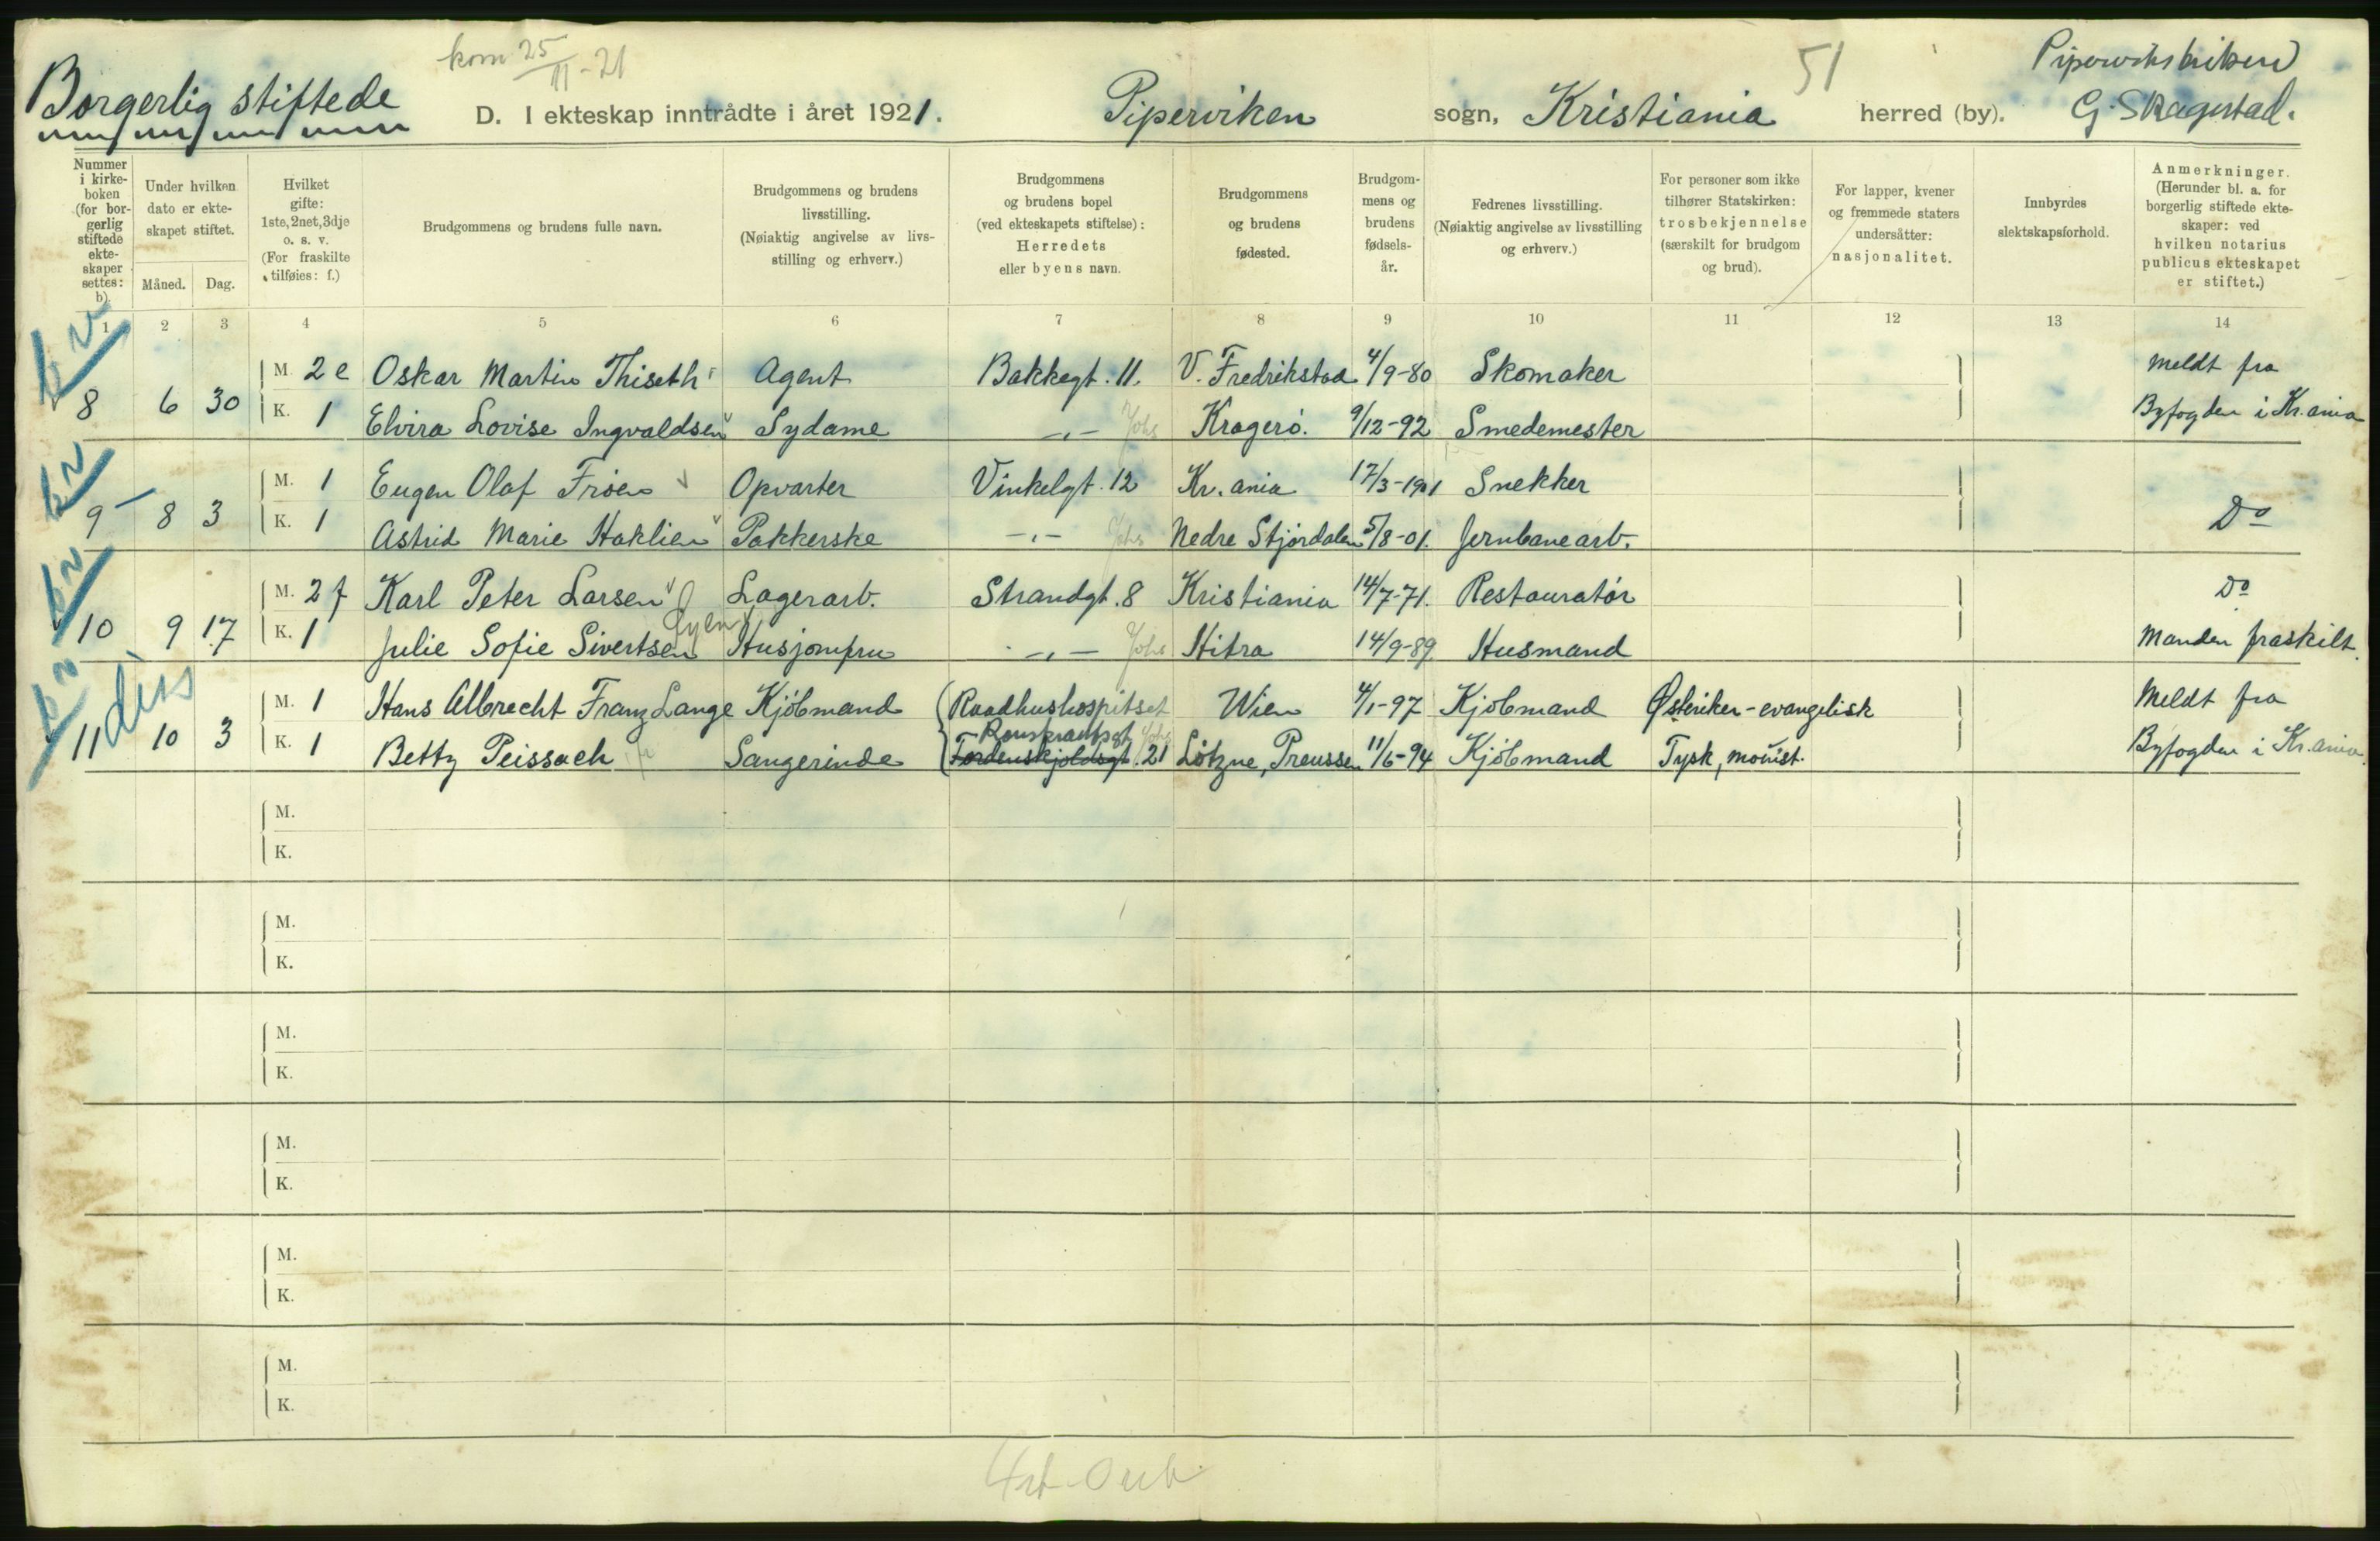 kom 25/11-21
51
Borgerlig stiftede
D. I ekteskap inntrådte i året 1921. Piperviken sogn, Kristiania herred (by). G. Skagestad.
Nummer i kirkeboken (for borgerlig stiftede ekteskaper settes: b).
Under hvilken dato er ekteskapet stiftet.
Måned. Dag.
Hvilket gifte: 1ste, 2net, 3dje o. s. v. (For fraskilte tilføies: f.)
Brudgommens og brudens fulle navn.
Brudgommens og brudens livsstilling. (Nøiaktig angivelse av livsstilling og erhverv.)
Brudgommens og brudens bopel (ved ekteskapets stiftelse): Herredets eller byens navn.
Brudgommens og brudens fødested.
Brudgommens og brudens fødselsår.
Fedrenes livsstilling. (Nøiaktig angivelse av livsstilling og erhverv.)
For personer som ikke tilhører Statskirken: trosbekjennelse (særskilt for brudgom og brud).
For lapper, kvener og fremmede staters undersåtter: nasjonalitet.
Innbyrdes slektskapsforhold.
Anmerkninger. (Herunder bl. a. for borgerlig stiftede ekteskaper: ved hvilken notarius publicus ekteskapet er stiftet.)
1 2 3 4 5 6 7 8 9 10 11 12 13 14
M. 2 e Oskar Martin Thiseth Agent Bakkegt. 11. V. Fredrikstad 4/9-80 Skomaker Meldt fra
8 6 30 K. 1 Elvira Lovise Ingvaldsen Sydame -"- Kragerö. 9/12-92 Smedemester Byfogden i Kr.ania
M. 1 Eugen Olaf Friöen Opvarter Vinkelgt. 12 Kr.ania 17/3-1901 Snekker
9 8 3 K. 1 Astrid Marie Haklien Pakkerske -"- Nedre Stjördalen 5/8-01. Jernbanearb. Do
M. 2 f Karl Peter Larsen Lagerarb. Strandgt. 8 Kristiania 14/7-71. Restauratör Do
10 9 17 K. 1 Julie Sofie Sivertsen Husjomfru -"- Hitra 14/9-89 Husmand Manden fraskilt.
M. 1 Hans Albrecht Franz Lange Kjöbmand Raadhushospitset Wien 4/1-97 Kjöbmand Østeriker-evangelisk Meldt fra
11 10 3 K. 1 Betty Peissach Sangerinde Tordenskjoldsgt. 21 Lötzne, Preussen 11/6-94 Kjöbmand Tysk, monist. Byfogden i Kr.ania.
M.
K.
M.
K.
M.
K.
M.
K.
M.
K.
M.
K.